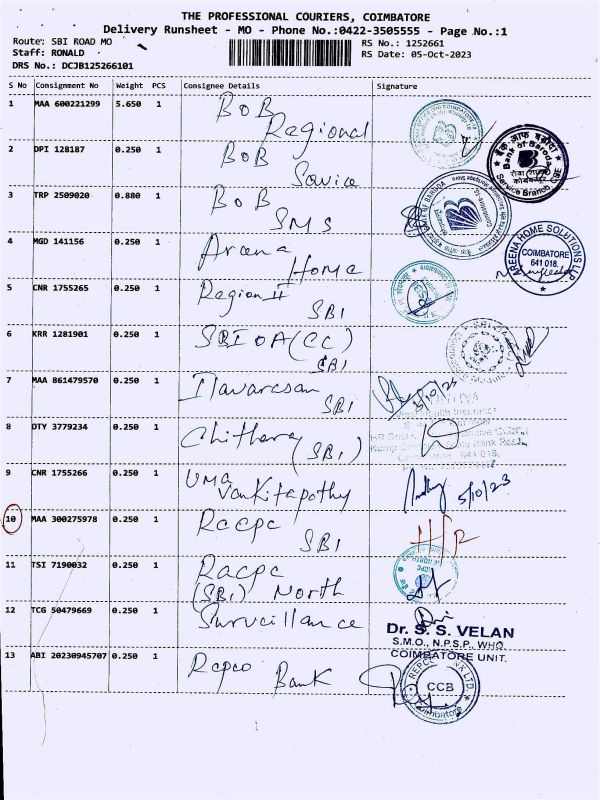 THE PROFESSIONAL COURIERS, COIMBATORE
Delivery Runsheet - MO - Phone No.:0422-3505555 - Page No.:1
Route: SBI ROAD MO
RS No.: 1252661
Staff: RONALD
RS Date: 05-Oct-2023
DRS No.: DCJB125266101
S No Consignment No Weight PCS Consignee Details Signature
1 MAA 600221299 5.650 1 BOB
Regional
2 DPI 128187 0.250 1 BOB
Service
बैंक ऑफ बड़ौदा
Bank of Baroda
Service Branch, CBE
3 TRP 2509020 0.880 1 BOB
SMS
BANK OF BARODA
4 MGD 141156 0.250 1 Areena
Home
AREENA HOME SOLUTIONS LLP
COIMBATORE
641 018.
5 CNR 1755265 0.250 1 Region II
SBI
6 KRR 1281901 0.250 1 SBIOA (CC)
SBI
7 MAA 861479570 0.250 1 Ilavarasan
SBI
5/10/23
8 DTY 3779234 0.250 1 Chithara
(SBI)
9 CNR 1755266 0.250 1 UMA
Vankitapathy
5/10/23
10 MAA 300275978 0.250 1 Racpc
SBI
11 TSI 7190032 0.250 1 Racpc
(SBI) North
12 TCG 50479669 0.250 1 Surveillance
Dr. S. S. VELAN
S.M.O., N.P.S.P., WHO.
COIMBATORE UNIT.
13 ABI 20230945707 0.250 1 Repco
Bank
REPCO BANK LTD.
CCB
Coimbatore